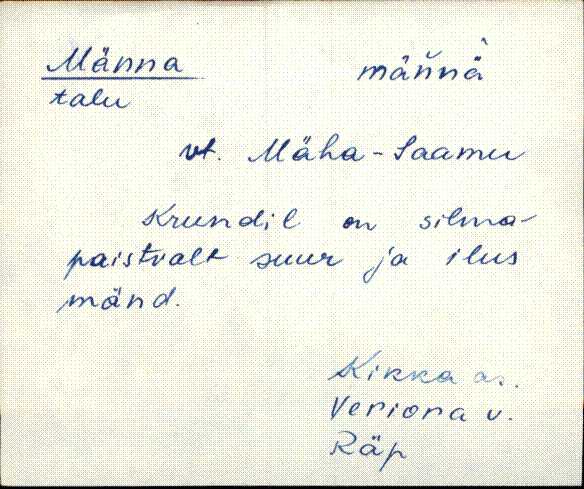 Männa männä̀
talu
vt. Mäha-Saamu
Krundil on silma-
paistvalt suur ja ilus
mänd.
Kikka as.
Veriora v.
Räp